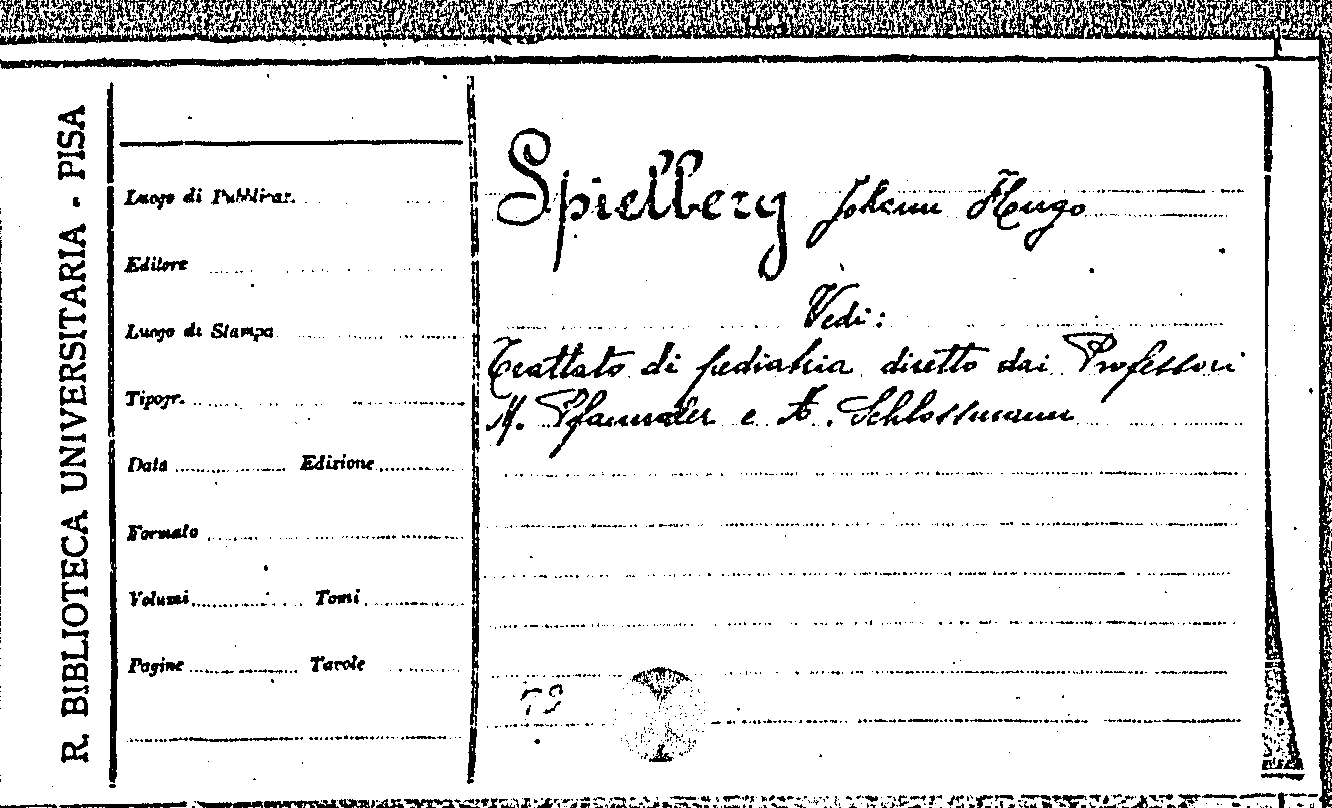 R. BIBLIOTECA UNIVERSITARIA - PISA
Luogo di Pubblicaz.
Editore
Luogo di Stampa
Tipogr.
Data Edizione
Formato
Volumi Tomi
Pagine Tavole
Spielberg Johann Hugo
Vedi:
Trattato di pediatria diretto dai Professori
M. Pfaundler e A. Schlossmann